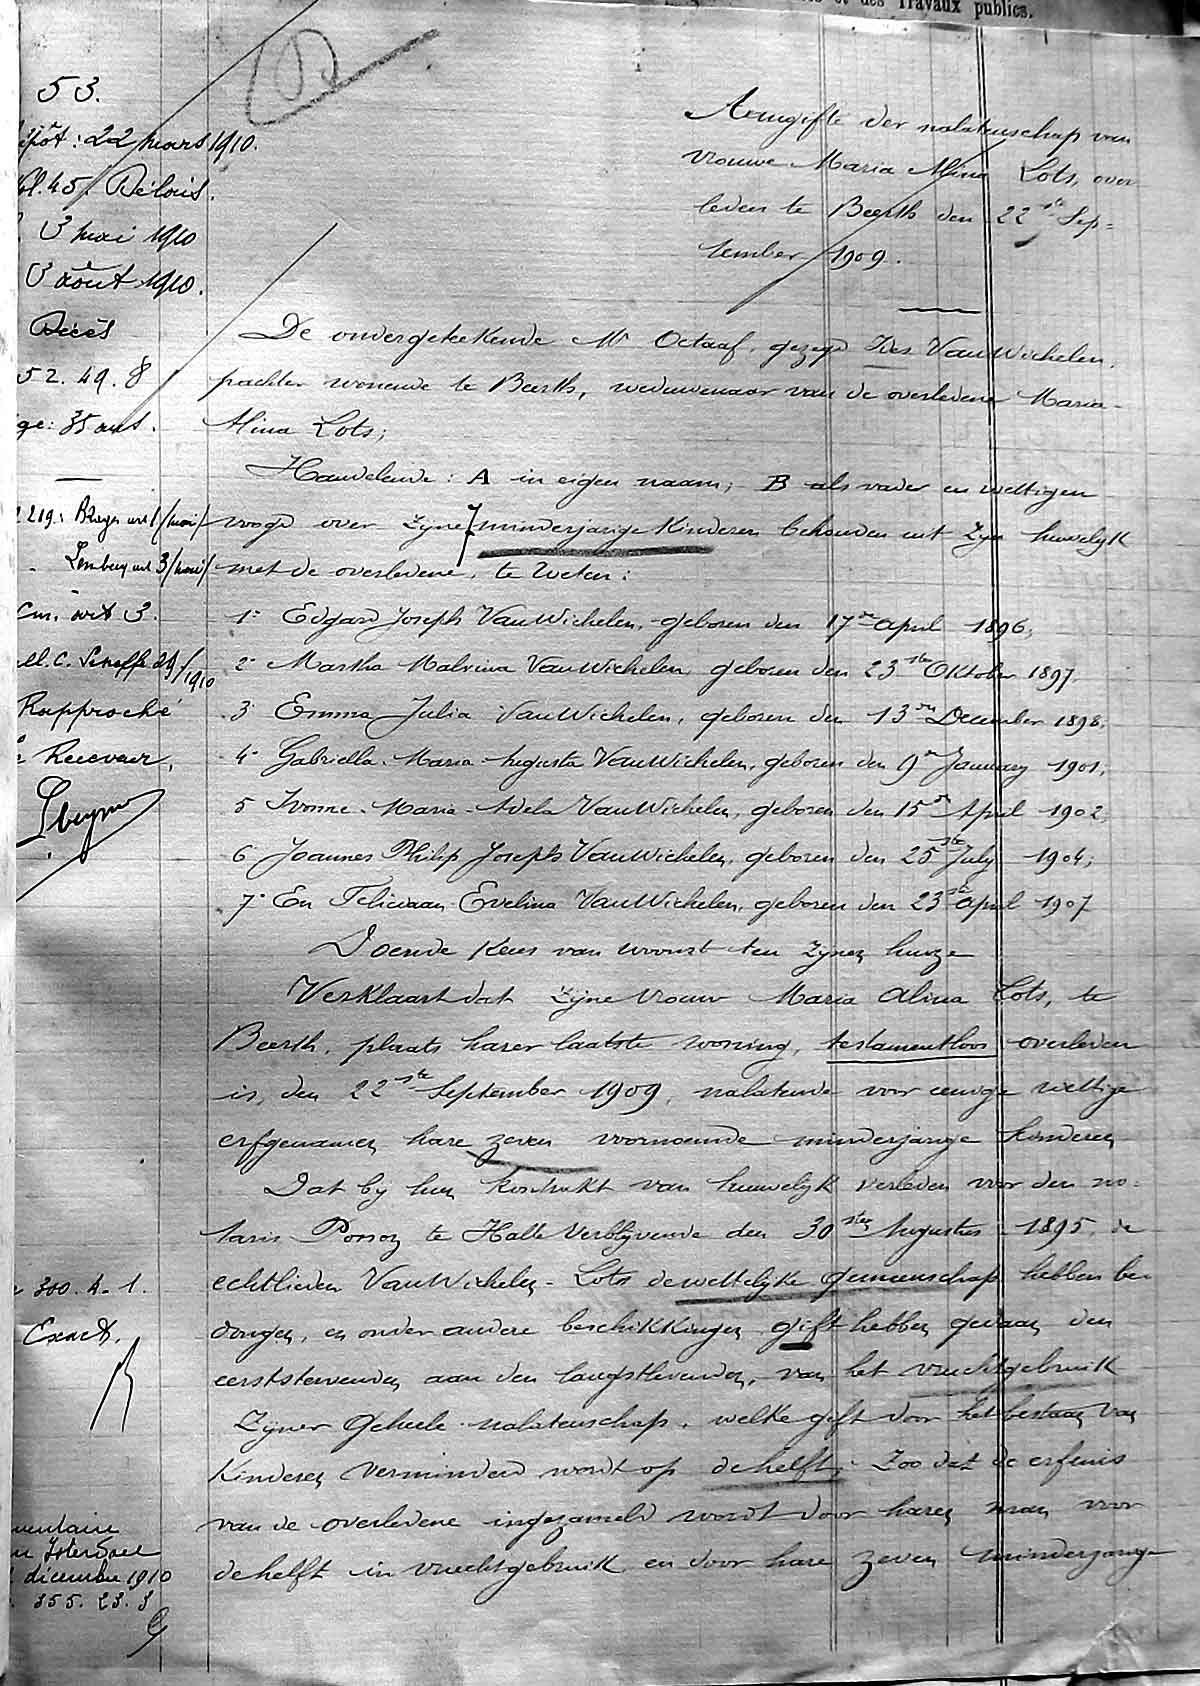 et des Travaux publics.
53.
22 mars 1910.
45. Délais.
3 mai 1910
3 août 1910.
Décès
52. 49. 8
35 ans.
219.
3/mai/
art 3.
Rapproché
Receveur,
300. A. 1.
Exact.
décembre 1910
355. 23. 3
Aangifte der nalatenschap van
vrouwe Maria Alina Lots, over
leden te Beerth den 22ste Sep=
tember 1909.
De ondergeteekende Mr Octaaf, gezegd Van Wichelen,
pachter wonende te Beerth, weduwenaar van de overledene Maria-
Alina Lots;
Handelende: A in eigen naam; B als vader en wettigen
voogd over zijne 7 minderjarige Kinderen behouden uit zijn huwelijk
met de overledene, te weten:
1° Edgard Joseph Van Wichelen, geboren den 17en april 1896;
2° Martha Malvina Van Wichelen, geboren den 23ste Oktober 1897,
3° Emma Julia Van Wichelen, geboren den 13en December 1898;
4° Gabriella-Maria-Augusta Van Wichelen, geboren den 9en January 1901;
5 Ivonne-Maria-Adela Van Wichelen, geboren den 15en April 1902;
6° Joannes Philip Joseph Van Wichelen, geboren den 25ste July 1904;
7° En Feliciaan-Evelina Van Wichelen, geboren den 23ste april 1907
Doende Keus van woonst ten zijnen huize
Verklaart dat zijne vrouw Maria Alina Lots, te
Beerth, plaats harer laatste woning, testamentloos overleden
is, den 22ste September 1909, nalatende voor eenige wettige
erfgenamen hare zeven voornoemde minderjarige kinderen
Dat bij hun kontrakt van huwelijk verleden voor den no=
taris Possoz te Halle verblijvende den 30sten Augustus 1895, de
echtlieden Van Wichelen-Lots de wettelijke gemeenschap hebben be
dongen, en onder andere beschikkingen gift hebben gedaan den
eerststervenden aan den langstlevenden, van het vruchtgebruik
Zijner Geheele nalatenschap, welke gift door het bestaan van
Kinderen verminderd wordt op de helft; Zoo dat de erfenis
van de overledene ingezameld wordt door haren man voor
de helft in vruchtgebruik en door hare zeven minderjarige